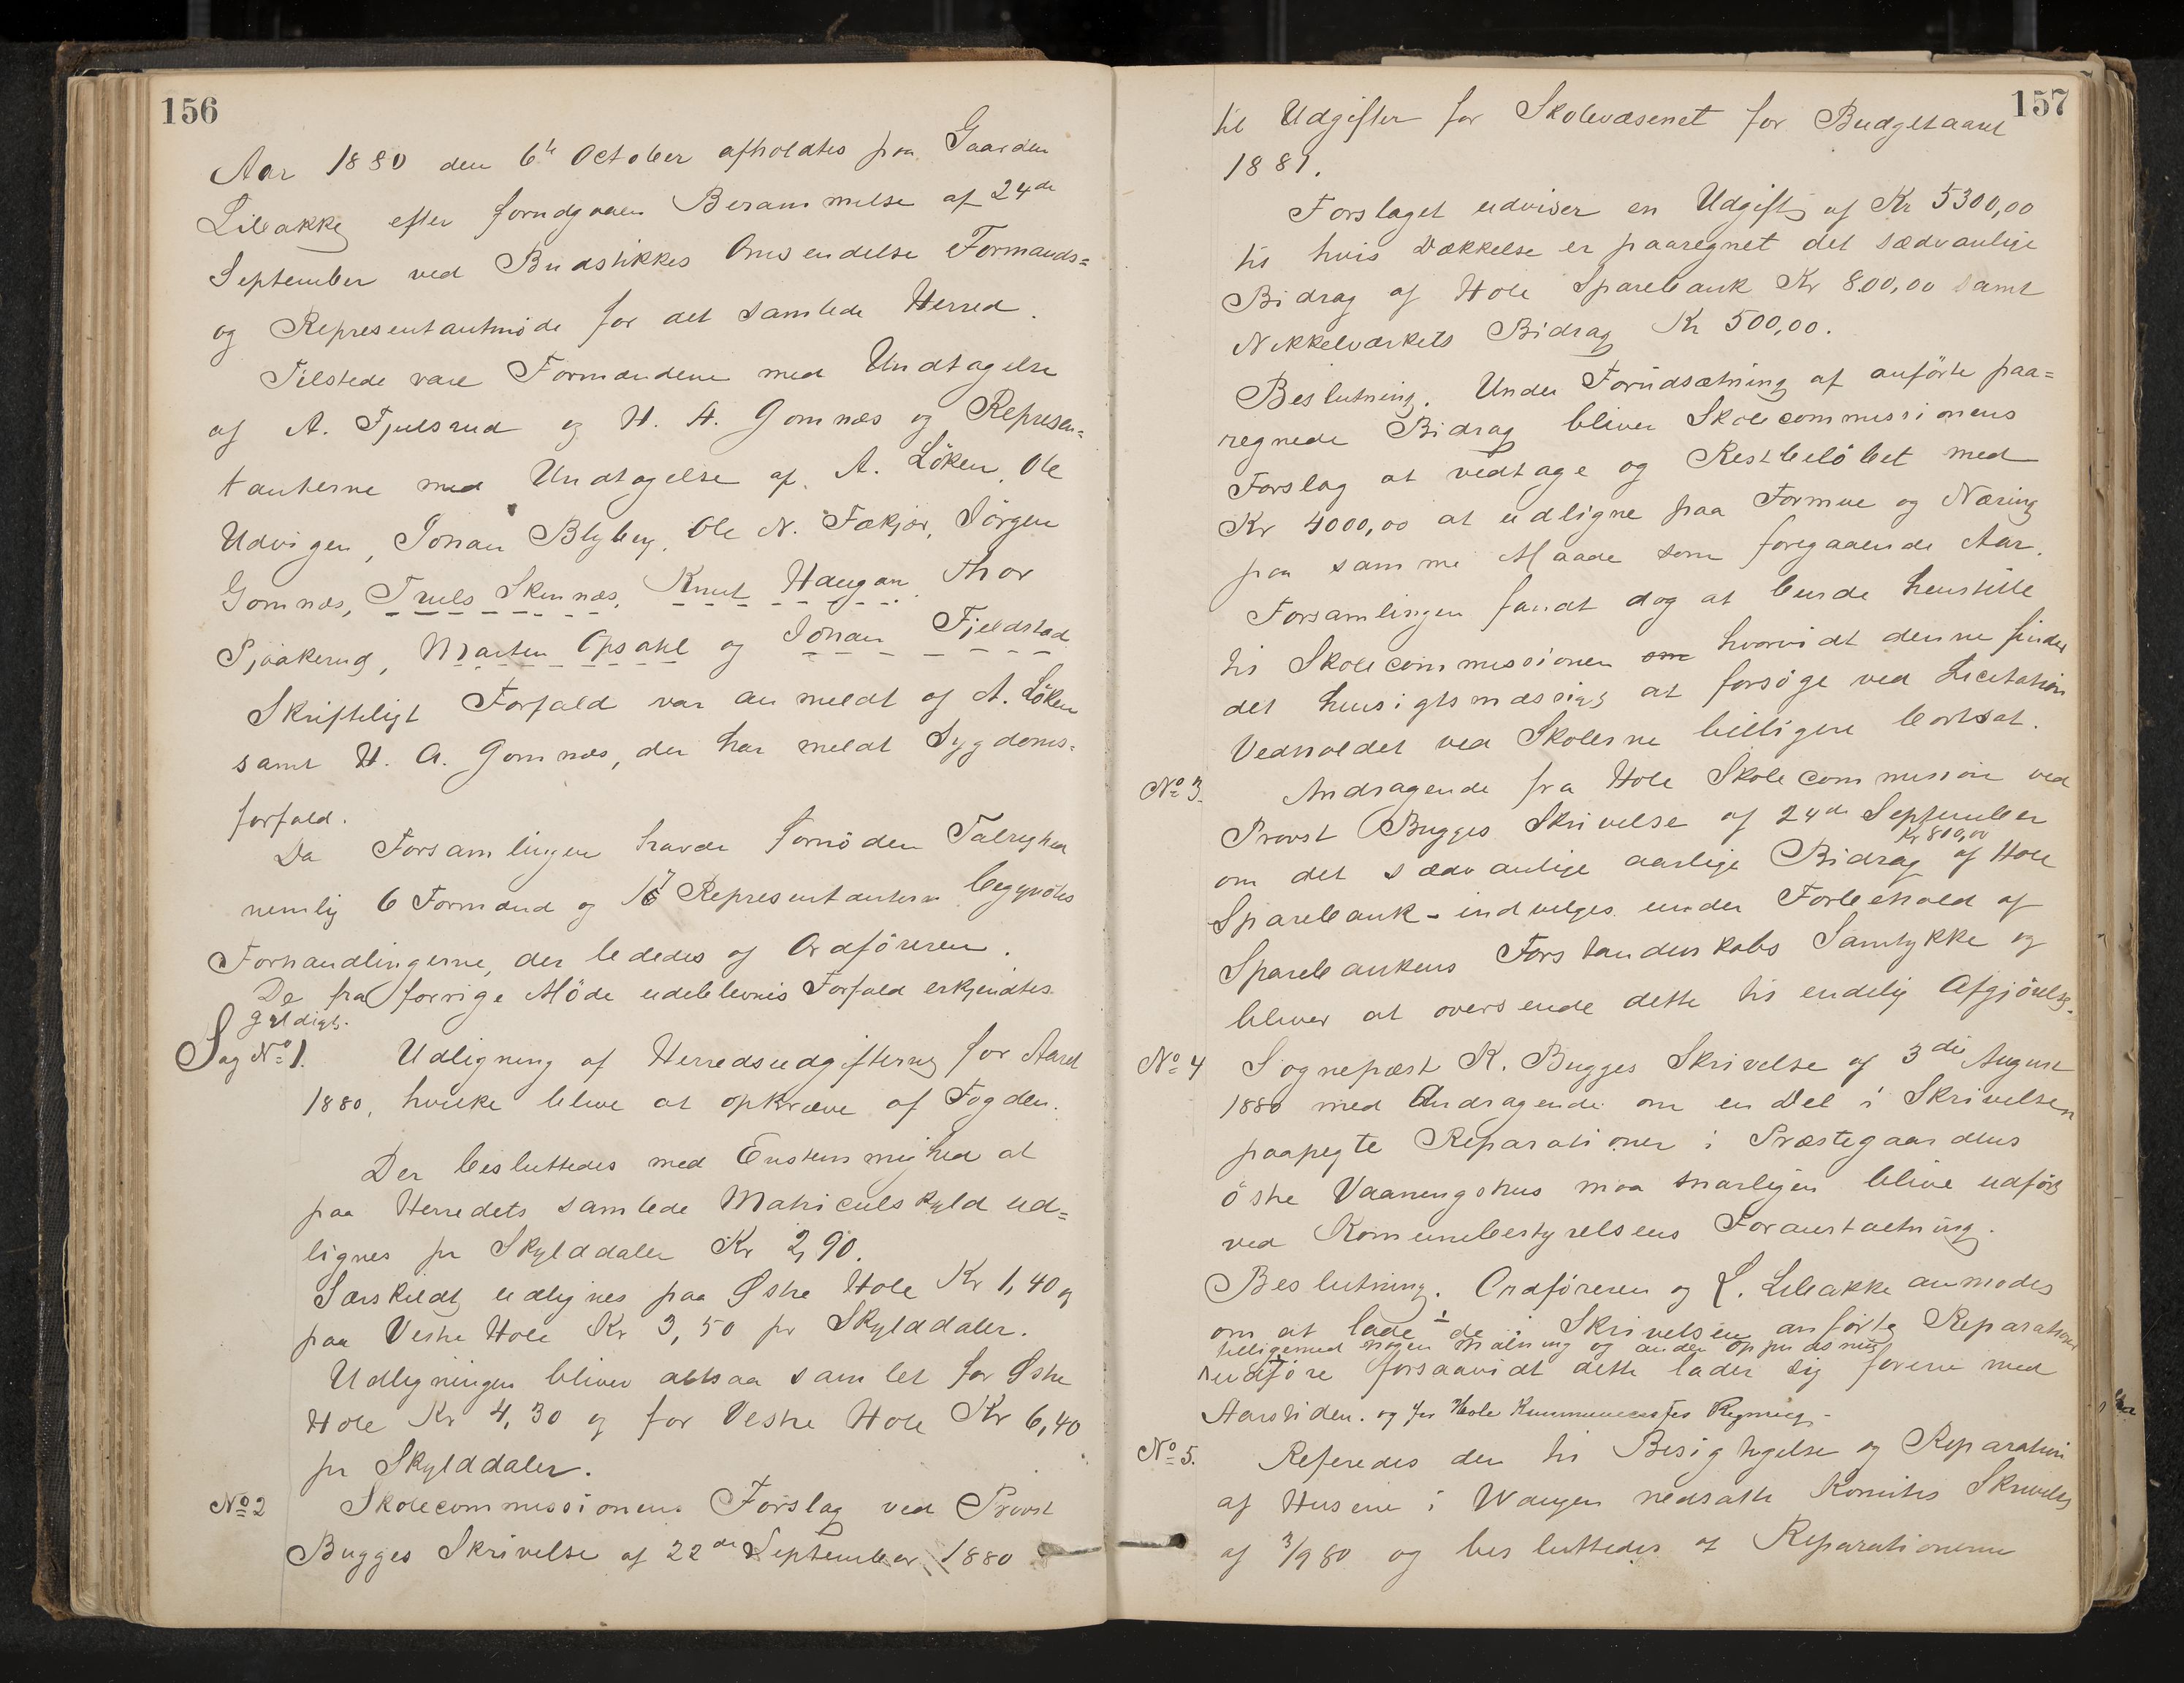 156
Aar 1880 den 6te October afholdtes paa Gaarden
Libakke efter forudgaaen Berammelse af 24de
September ved Budstikkes Omsendelse Formands=
og Representantmøde for det samlede Herred.
Tilstede vare Formændene med Undtagelse
af A. Fjulsrud og H. A. Gomnæs og Represen=
tanterne med Undtagelse af A. Löken, Ole
Udvigen, Johan Blyberg, Ole N. Fækjær, Jörgen
Gomnæs, Truls Skinnæs, Knut Haugan, Thor
Sjöakerud, Marten Opsahl og Johan Fjeldstad
Skriftligt Forfald var anmeldt af A. Löken
samt H. A. Gomnæs, der har meldt Sygdoms=
forfald.
Da Forsamlingen havde fornöden Talrighed
nemlig 6 Formænd og 17 Representanter begyndtes
Forhandlingerne, der lededes af Ordföreren.
De fra forrige Möde udeblevnes Forfald erkjendtes
gyldigt.
Sag No 1. Udligning af Herredsudgifterne for Aaret
1880, hvilke blive at opkræve af Fogden.
Der besluttedes med Enstemmighed at
paa Herredets samlede Matriculskyld ud=
lignes pr Skylddaler Kr 2,90.
Særskildt udlignes paa Østre Hole Kr 1,40 og
paa Vestre Hole Kr 3,50 pr Skylddaler.
Udligningen bliver altsaa samlet for Østre
Hole Kr 4,30 og for Vestre Hole Kr 6,40
pr Skylddaler.
No 2 Skolecommissionens Forslag ved Provst
Bugges Skrivelse af 22de September 1880
157
til Udgifter for Skolevæsenet for Budgetaaret
1881.
Forslaget udviser en Udgift af Kr 5300,00
til hvis Dækkelse er paaregnet det sædvanlige
Bidrag af Hole Sparebank Kr 800,00 samt
Nikkelværkets Bidrag Kr 500,00.
Beslutning. Under Forudsætning af anförte paa=
regnede Bidrag bliver Skolecommissionens
Forslag at vedtage og Restbelöbet med
Kr 4000,00 at udligne paa Formue og Næring
paa samme Maade som foregaaende Aar.
Forsamlingen fandt dog at burde henstille
til Skolecommissionen om hvorvidt denne finder
det hensigtsmæssigt at forsöge ved Licitation
Vedholdet ved Skolerne billigere bortsat.
No 3. Andragende fra Hole Skolecommission ved
Provst Bugges Skrivelse af 24de September
Kr 800,00
om det sædvanlige aarlige Bidrag af Hole
Sparebank - indvilges under Forbehold af
Sparebankens Forstanderskabs Samtykke og
bliver at oversende dette til endelig Afgjörelse.
No 4 Sognepræst K. Bugges Skrivelse af 3die August
1880 med Andragende om en Del i Skrivelsen
paapegte Reparationer i Præstegaardens
östre Vaaningshus maa snarligen blive udfört
ved Komunebestyrelsens Foranstaltning.
Beslutning. Ordföreren og L. Libakke anmodes
om at lade de i Skrivelsen anförte Reparationer
tilligemed nogen Malning og anden Oppudsning
udföre forsaavidt dette lader sig forene med
Aarstiden. og for Hole Kummunecasses Regning.
No 5. Referedes den til Besigtigelse og Reparation
af Husene i Wangen nedsatte Komites Skrivelse
af 3/9 80 og besluttedes at Reparationerne